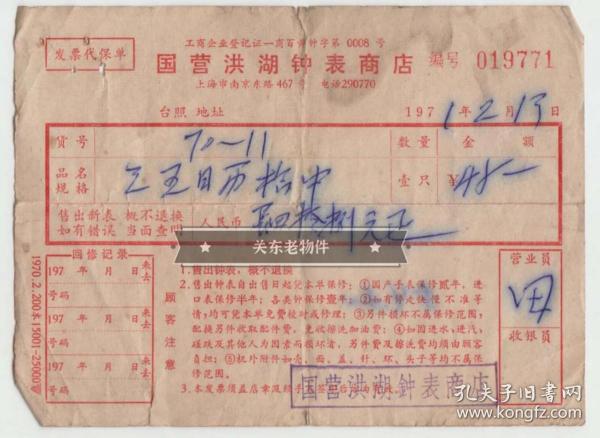 工商企业登记证一商百黄钟字第 0008 号
发票代保单
国营洪湖钟表商店 编号 019771
上海市南京东路467号 电话290770
台照 地址 1971年2月13日
货号 70-11 数量 金额
品名规格 三五日历抬中 壹只 ¥48-
售出新表 概不退换
如有错误 当面查明
人民币 肆拾捌元正
关东老物件
回修记录
197 年 月 日 来去
号码
197 年 月 日 来去
号码
197 年 月 日 来去
号码
1970.2.200本(15001-25050)
顾客注意
1.售出钟表，概不退换
2.售出钟表自出售日起凭本单保修：①国产手表保修贰年，进
口表保修半年；各类钟保修壹年；②如有停走快慢不准等
情，均可凭本单免费校对或修理；③另件损坏不属保修范围，
配换另件收取配件费，免收擦洗加油费；④如因进水，进汽，
碰跌及其他人为因素而损坏者，另件费及擦洗费均须由顾客
负担；⑤机外附件如壳、面、盖、针、环、头子等均不属保
修范围。
3.本发票须盖店章及经手
国营洪湖钟表商店
营业员
田
收银员
孔夫子旧书网
www.kongfz.com